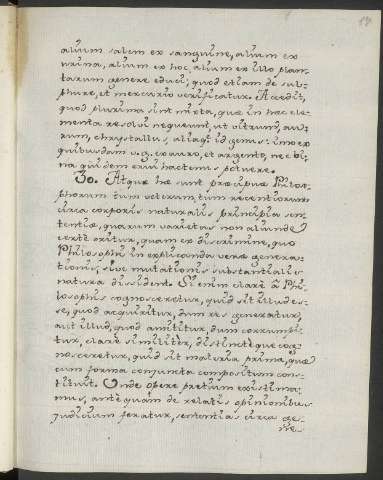 alium salem ex sanguine, alium ex
urina, alium ex hoc, alium ex illo plan-
tarum genere educi; quod etiam de sul-
phure, et mercurio verificatur. Accedit,
quod plurima sint mixta, quæ in hæc ele-
menta resolvi nequeunt, ut vitrum, au-
rum, chrystallus, aliaq; id genus: imo ex
quibusdam v.g. ex auro, et argento, nec bi-
na quidem erui hactenus potuere.
30. Atque hæ sunt præcipuæ Philos-
phorum tum veterum, tum recentiorum
circa corporis naturalis principia sen-
tentiæ, quarum varietas non aliunde
certè oritur, quam ex discrimine, quo
Philosophi in explicanda veræ genera-
tionis, sive mutationis substantialis
natura dissident. Si enim clarè à Phi-
losophis cognosceretur, quid sit illud es-
se, quod acquiritur, dum res generatur,
aut illud, quod amittitur, dum corrumpi-
tur, clarè similitèr, distinctèque cog-
nosceretur, quid sit materia prima, quæ
cum forma conjuncta compositum cons-
tituit. Unde opere pretium existima-
mus, antè quàm de relatis opinionibus
judicium feratur, sententias circa ge-
ne-